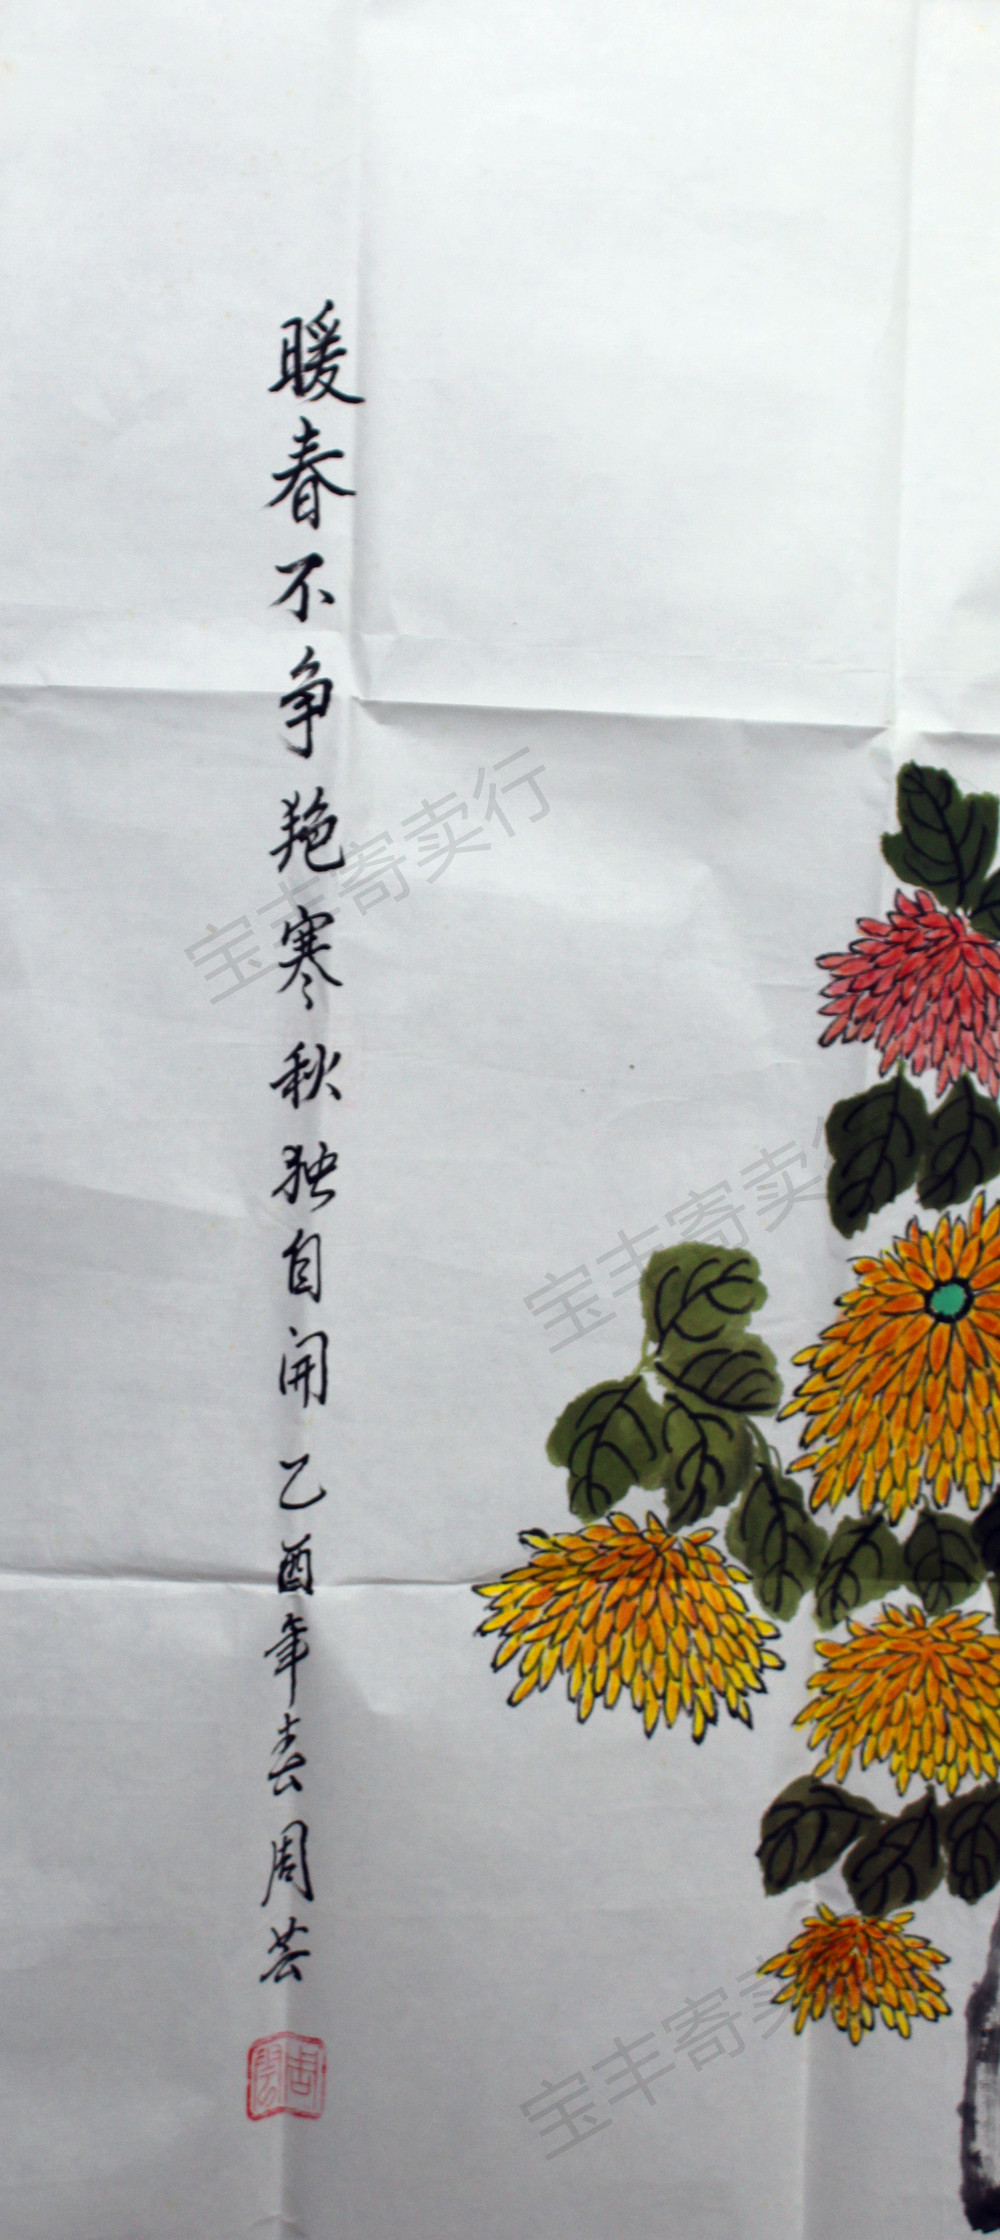 暖春不争艳寒秋独自开乙酉年去周芸
周芸
宝丰寄卖行
宝丰寄卖行
宝丰寄卖